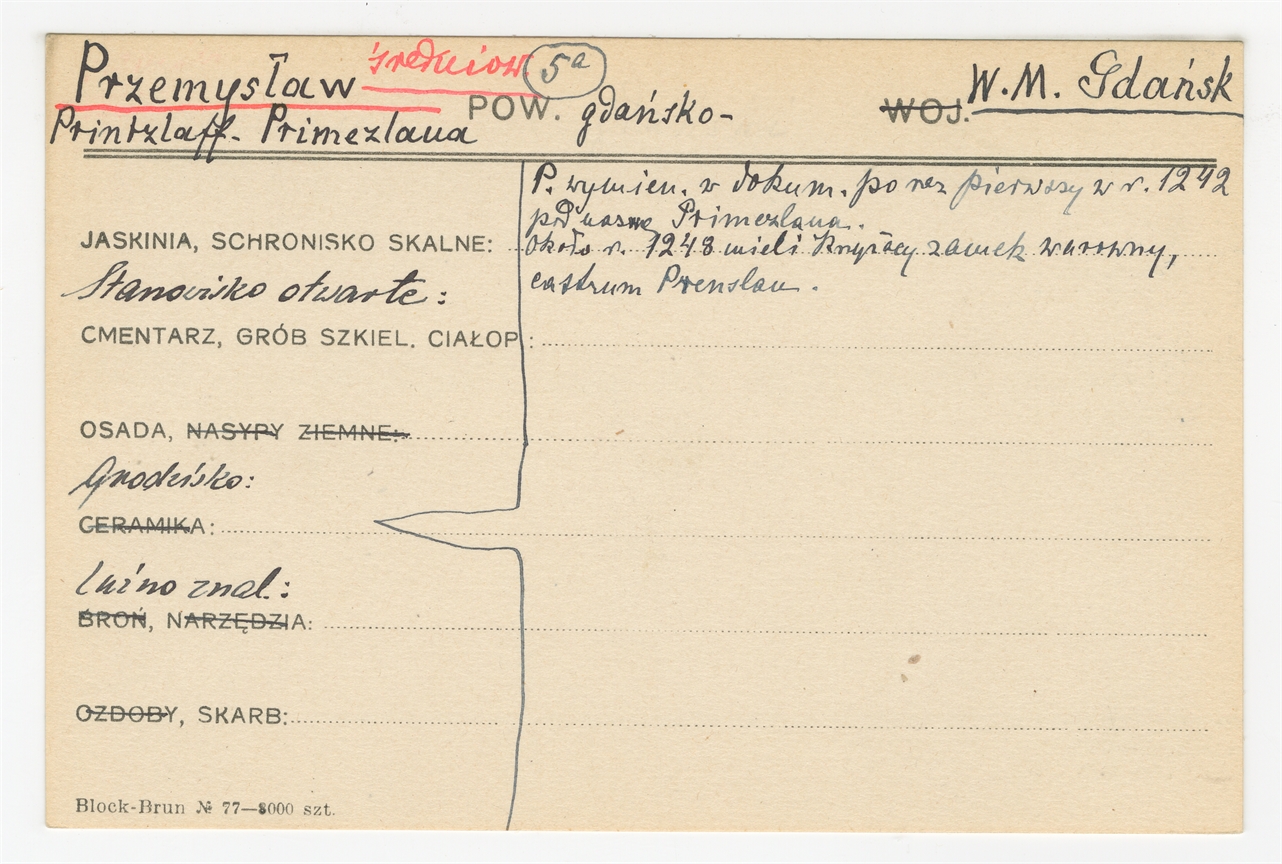 Przemysław średniow. 5a
POW. gdańsko-
WOJ. W.M. Gdańsk
Printzlaff- Primezlaua
P. wymien. w dokum. po raz pierwszy w r. 1242
pod nazwą Primezlaua.
JASKINIA, SCHRONISKO SKALNE:
około r. 1248 mieli Krzyżacy zamek warowny,
Stanowisko otwarte:
castrum Prenslau.
CMENTARZ, GRÓB SZKIEL. CIAŁOP.:
OSADA, NASYPY ZIEMNE:
Grodzisko:
CERAMIKA:
Luźno znal.:
BROŃ, NARZĘDZIA:
OZDOBY, SKARB:
Block-Brun № 77—8000 szt.